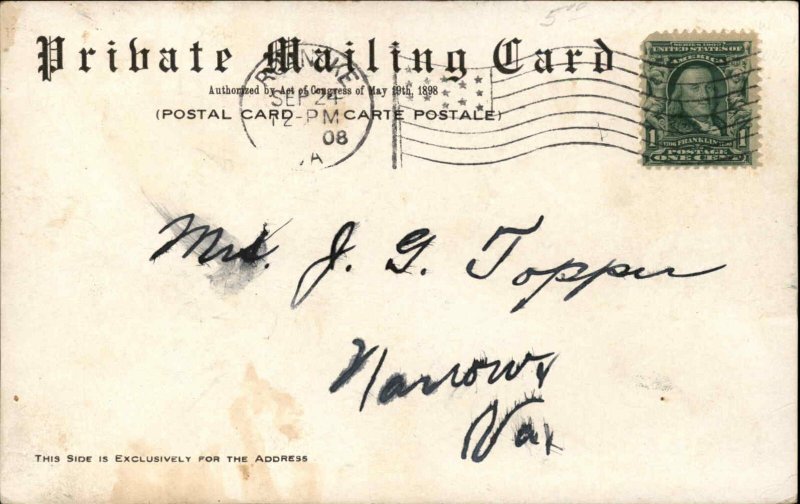 5⁰⁰
Private Mailing Card
Authorized by Act of Congress of May 19th, 1898
(POSTAL CARD - CARTE POSTALE)
ROANOKE
SEP 24
12-PM
08
VA
SERIES 1902
UNITED STATES OF
AMERICA
1 FRANKLIN 1
POSTAGE
ONE CENT
Mrs. J. G. Topper
Narrows
Va.
THIS SIDE IS EXCLUSIVELY FOR THE ADDRESS